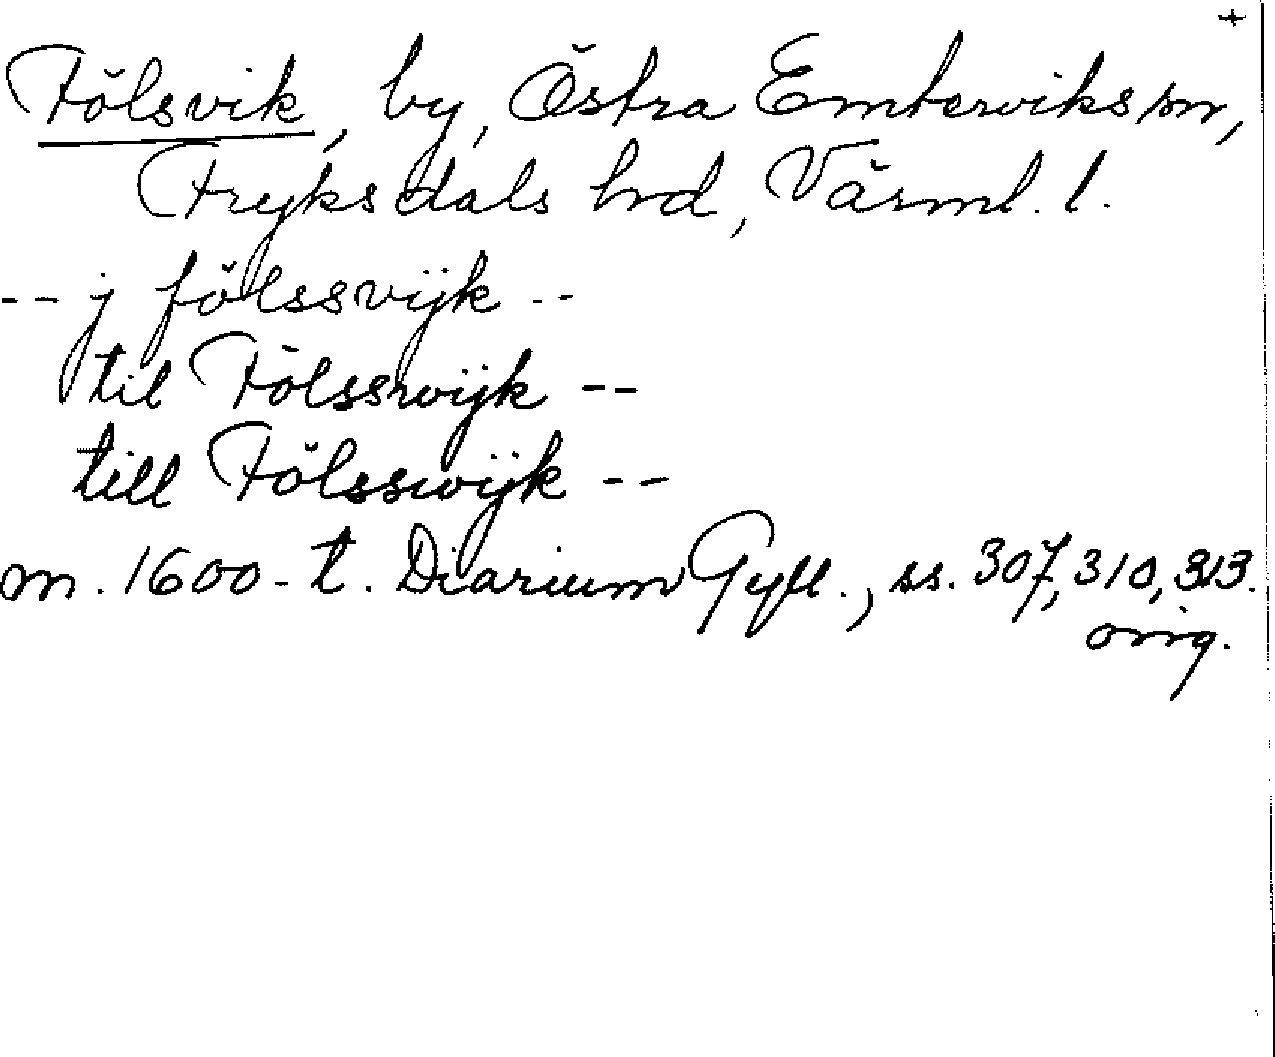 +
Fölsvik, by, Östra Emterviks sn,
Fryksdals hrd, Värml. l.
-- j fölssvijk --
til Fölssrwijk --
till Fölsswijk --
m. 1600-t. Diarium Gyll., ss. 307, 310, 313.
orig.